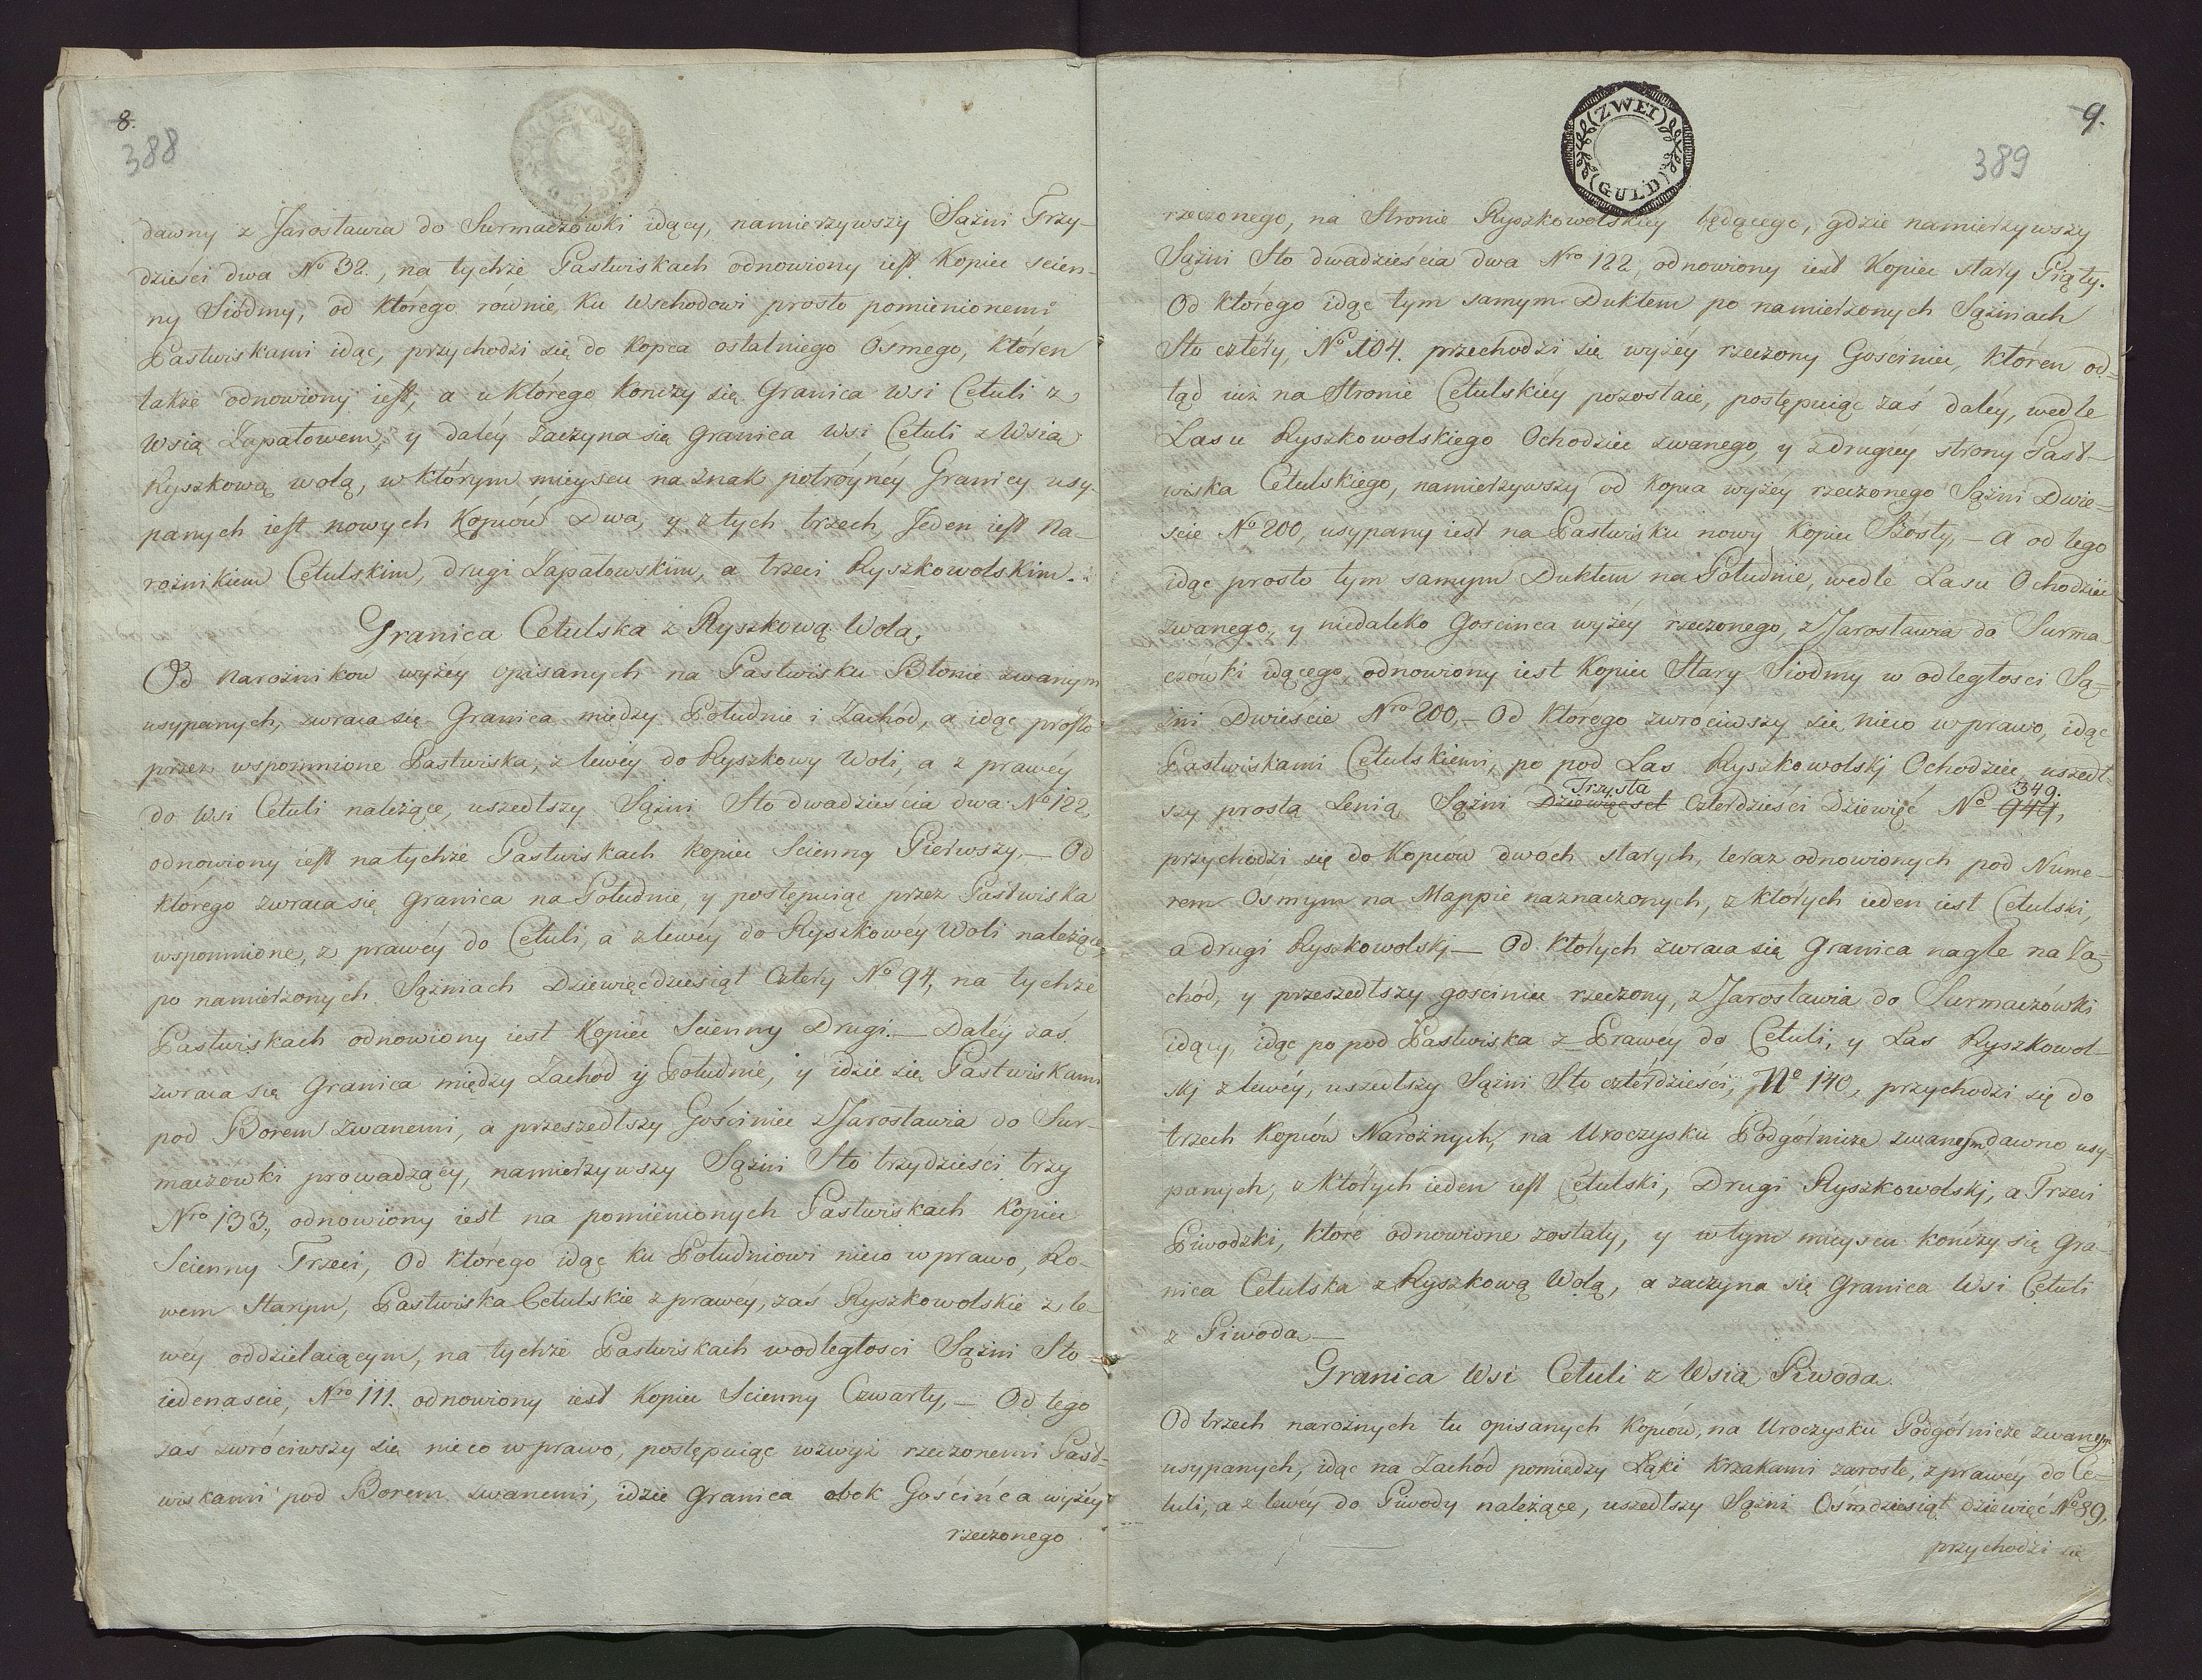 8.
388
dawny z Jarosławia do Surmaczówki idący, namierzywszy Sążni Trzy-
dzieści dwa No 32., na tychże Pastwiskach odnowiony iest Kopiec scien-
ny Siódmy, od którego równie ku Wschodowi prosto pomienionemi
Pastwiskami idąc, przychodzi się do Kopca ostatniego Ósmego, któren
także odnowiony iest, a u którego kończy się Granica wsi Cetuli z
Wsią Łapałowem, y daléy zaczyna się granica wsi Cetuli z Wsią
Ryszkową wolą, w którym mieyscu na znak potróynéy Granicy usy-
panych iest nowych Kopców Dwa, y z tych trzech, Jeden iest Na-
rożnikiem Cetulskim, drugi Łapałowskim, a trzeci Ryszkowolskim.
Granica Cetulska z Ryszkową Wolą.
Od narożnikow wyżey opisanych na Pastwisku Błonie zwanym
usypanych, zwraca się Granica między Południe i Zachód, a idąc prosto
przez wspomnione Pastwiska, z lewéy do Ryszkowy Woli, a z prawéy
do Wsi Cetuli należące, uszedłszy Sążni Sto dwadzieścia dwa No 122,
odnowiony iest na tychże Pastwiskach kopiec Scienny Pierwszy, — Od
którego zwraca się granica na Południe, y postępuiąc przez Pastwiska
wspomnione, z prawéy do Cetuli, a z lewéy do Ryszkowéy Woli należące,
po namierzonych Sążniach Dziewięćdziesiąt cztery No 94, na tychże
Pastwiskach odnowiony iest Kopiec Scienny Drugi. — Daléy zaś
zwraca się Granica między Zachód y Południe, y idzie się Pastwiskami
pod Borem zwanemi, a przeszedłszy Gościniec z Jarosławia do Sur-
maczówki prowadzący, namierzywszy Sążni Sto trzydzieści trzy
Nro 133, odnowiony iest na pomienionych Pastwiskach Kopiec
Scienny Trzeci, Od którego idąc ku Południowi nieco w prawo, Ro-
wem Starym, Pastwiska Cetulskie z prawéy, zaś Ryszkowolskie z le-
wéy oddzielaiącym, na tychże Pastwiskach w odległosci Sążni Sto
iedenascie, Nro 111. odnowiony iest Kopiec Scienny Czwarty, — Od tego
zaś zwróciwszy się nieco w prawo, postępuiąc wzwyż rzeczonemi Past-
wiskami pod Borem zwanemi, idzie granica obok Gościńca wyżéy
rzeczonego
9.
389
ZWEI
GULD
rzeczonego, na Stronie Ryszkowolskiey będącego, gdzie namierzywszy
Sążni Sto dwadzieścia dwa Nro 122, odnowiony iest Kopiec stary Piąty.
Od którego idąc tym samym Duktem po namierzonych Sążniach
Sto cztery, No 104. przechodzi się wyżéy rzeczony Gościniec, któren od-
tąd iuż na Stronie Cetulskiéy pozostaie, postępuiąc zaś daléy, wedle
Lasu Ryszkowolskiego Ochodziec zwanego, y z drugiey strony Past-
wiska Cetulskiego, namierzywszy od Kopca wyżey rzeczonego Sążni Dwie-
scie No 200, usypany iest na Pastwisku nowy Kopiec Szósty, — a od tego
idąc prosto tym samym Duktem na Południe, wedle Lasu Ochodziec
zwanego, y niedaleko Gościnca wyżéy rzeczonego, z Jarosławia do Surma-
czówki idącego, odnowiony iest Kopiec Stary Siodmy w odległosci Są-
żni Dwieście Nro 200, — Od którego zwróciwszy się nieco w prawo, idąc
Pastwiskami Cetulskiemi, po pod Las Ryszkowolskj Ochodziec, uszedł-
Trzysta 349.
szy prosta Lenią Sążni Dziewięcset czterdzieści Dziewięć No 949,
przychodzi się do Kopców dwoch starych, teraz odnowionych pod Nume-
rem Osmym na Mappie naznaczonych, z których ieden iest Cetulski,
a drugi Ryszkowolskj — Od których zwraca się Granica nagle na Za-
chód, y przeszedłszy gosciniec rzeczony, z Jarosławia do Surmaczówki
idący, idąc po pod Pastwiska z Prawéy do Cetuli, y Las Ryszkowol-
skj z lewéy, uszedłszy Sążni Sto czterdzieści, No 140, przychodzi się do
trzech Kopców Narożnych, na Uroczysku Podgórnicze zwanem, dawno usy-
panych, z których ieden iest Cetulski, Drugi Ryszkowolskj, a Trzeci
Piwodzki, które odnowione zostały, y w tym mieyscu kończy się Gra-
nica Cetulska z Ryszkową Wolą, a zaczyna się Granica Wsi Cetuli
z Piwodą —
Granica Wsi Cetuli z Wsią Piwodą.
Od trzech narożnych tu opisanych Kopców, na Uroczysku Podgórnicze zwanem
usypanych, idąc na Zachód pomiędzy Łąki krzakami zarosłe, z prawéy do Ce-
tuli, a z lewéy do Piwody należące, uszedłszy Sążni Ośmdziesiąt dziewięć No 89,
przychodzi się